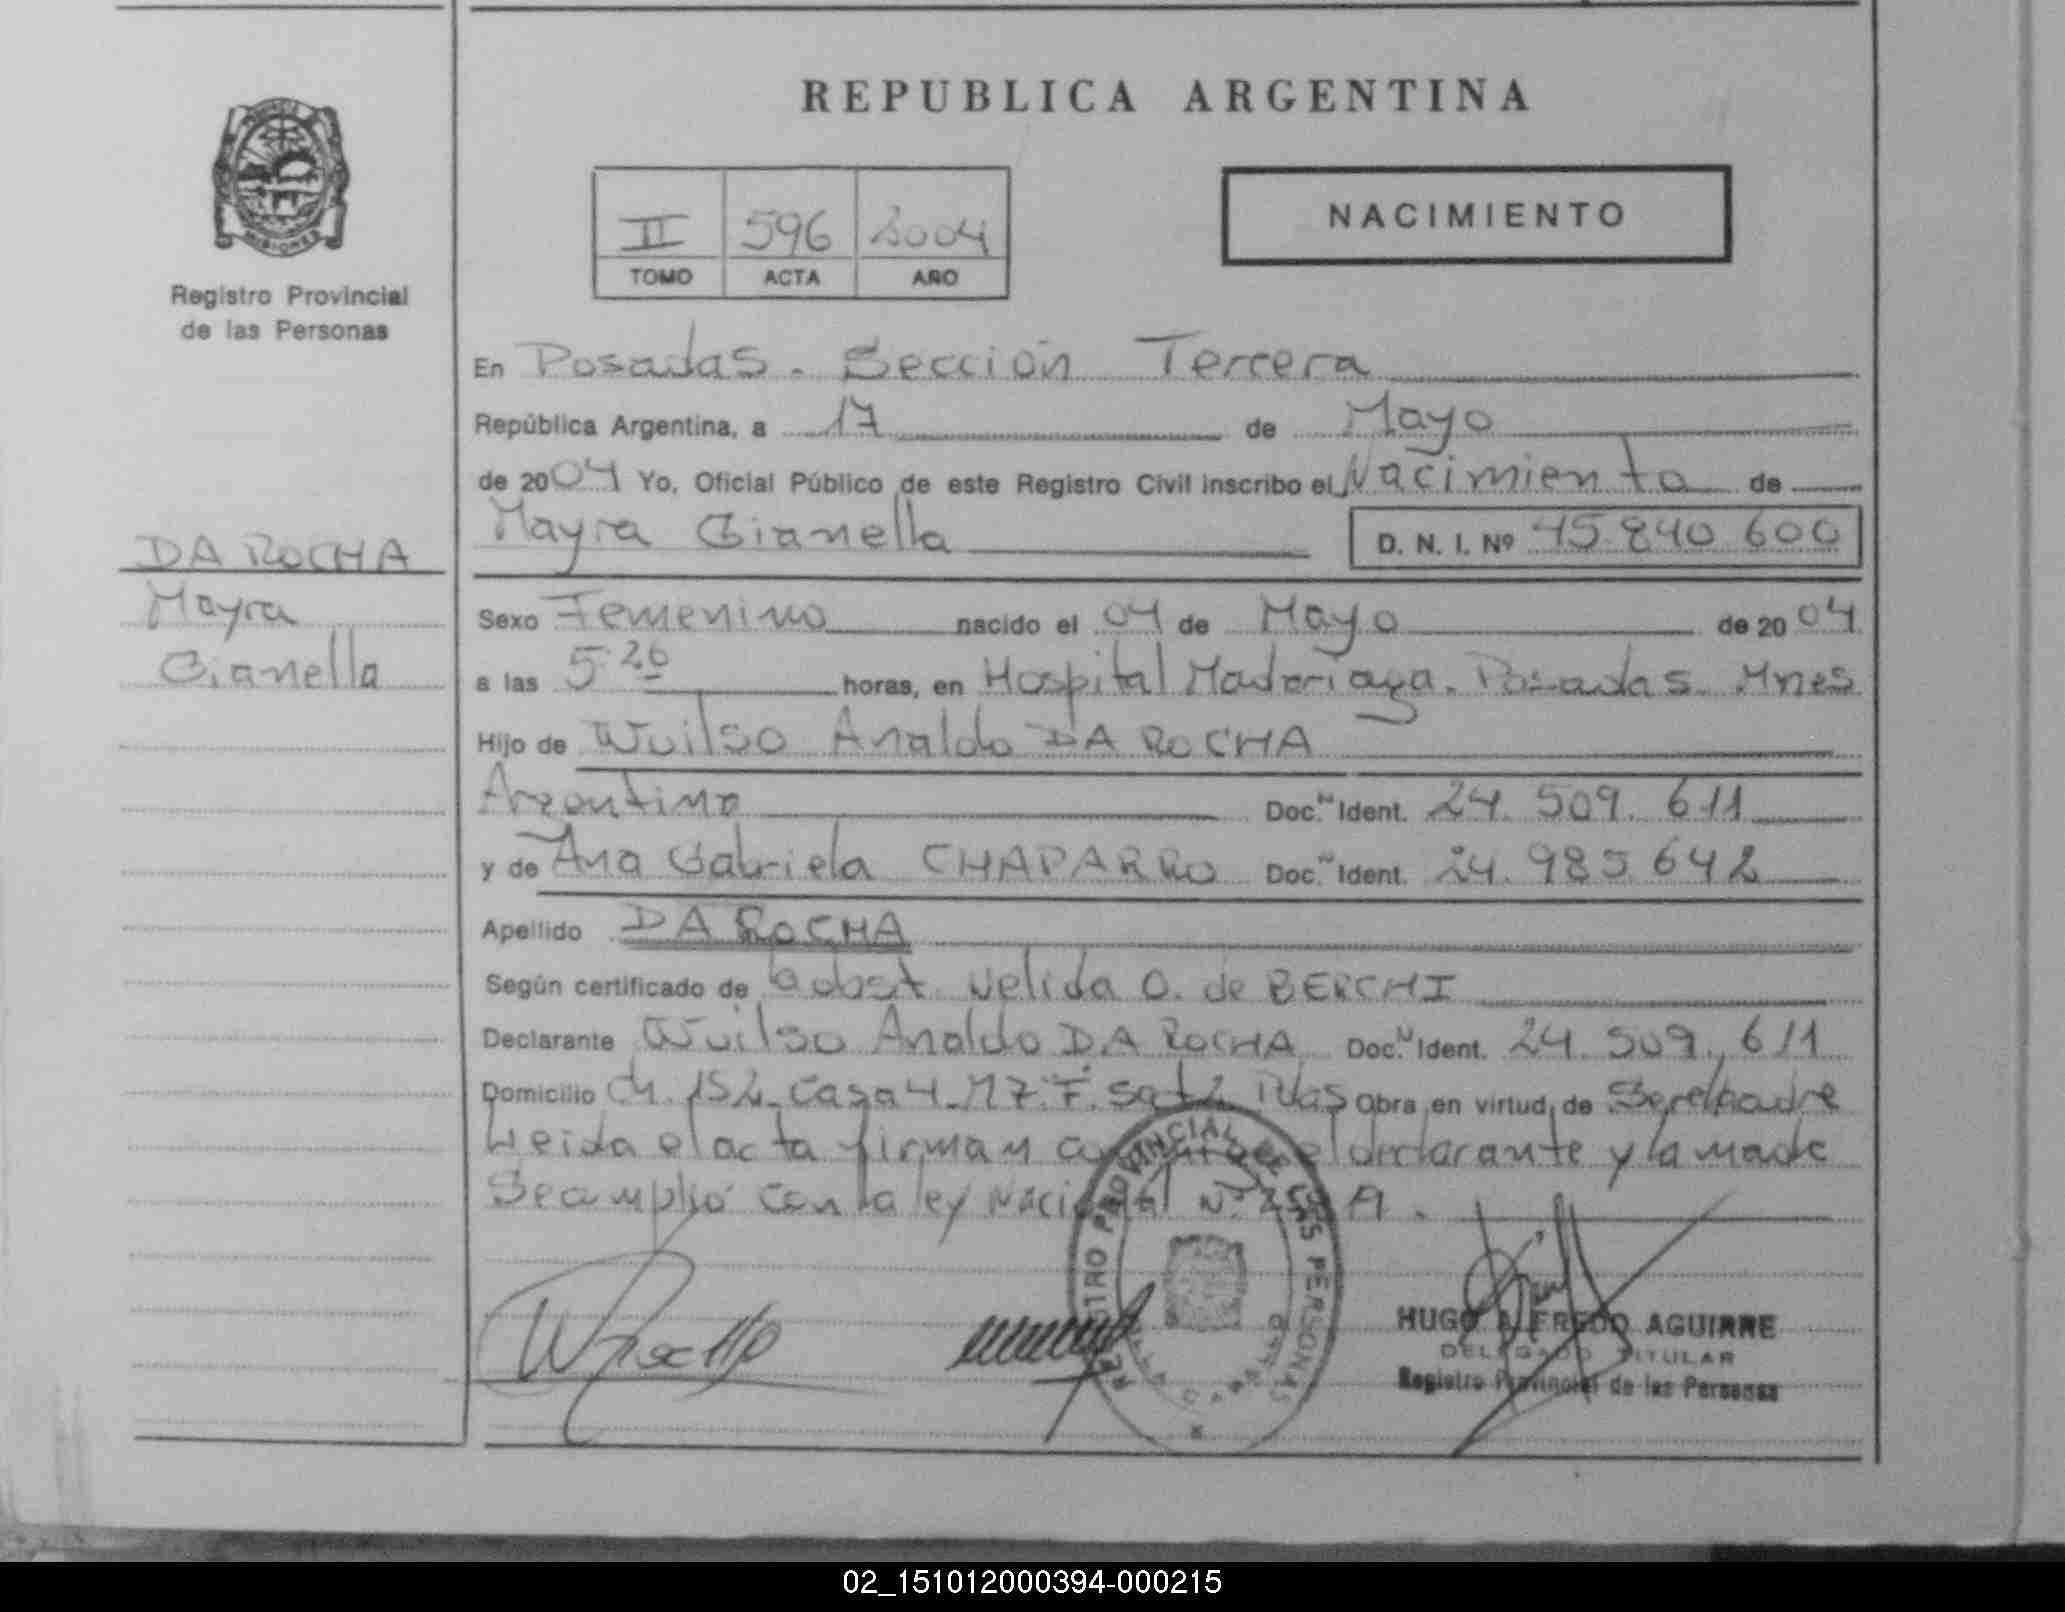 REPUBLICA ARGENTINA
MISIONES
Registro Provincial
de las Personas
II 596 2004
TOMO ACTA AÑO
NACIMIENTO
DA ROCHA
Mayra
Gianella
En Posadas. Sección Tercera
República Argentina, a 17 de Mayo
de 2004 Yo, Oficial Público de este Registro Civil inscribo el Nacimiento de
Mayra Gianella D. N. I. Nº 45.840.600
Sexo Femenino nacido el 04 de Mayo de 2004
a las 5:26 horas, en Hospital Madariaga. Posadas. Mnes
Hijo de Wuilso Analdo DA ROCHA
Argentino Doc. N Ident. 24.509.611
y de Ana Gabriela CHAPARRO Doc. N Ident. 24.985.642
Apellido DA ROCHA
Según certificado de obst. Nelida O. de BERCHI
Declarante Wuilso Analdo DA ROCHA Doc. N Ident. 24.509.611
Domicilio Ch. 152 Casa 4 Obra en virtud de Ser el padre
Leida el acta firman el declarante y la madre
Se cumplió con la ley Nacional Nº
REGISTRO PROVINCIAL DE LAS PERSONAS
HUGO ALFREDO AGUIRRE
DELEGADO TITULAR
Registro Provincial de las Personas
02_151012000394-000215